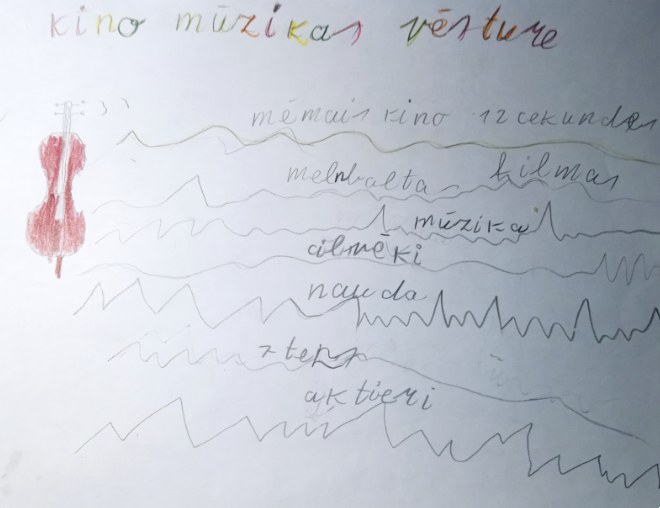 kino mūzikas vēsture
mēmais kino 12 cekundes
melnbalta filmas
mūzika
cilvēki
nauda
aktieri